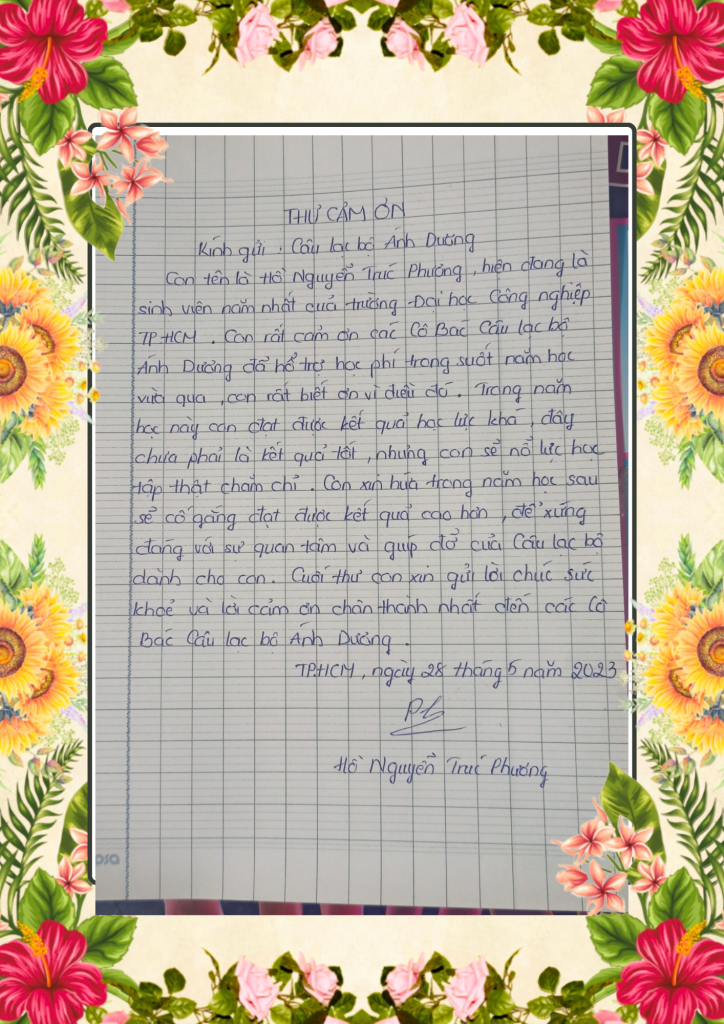 THƯ CẢM ƠN
Kính gửi : Câu lạc bộ Ánh Dương
Con tên là Hồ Nguyễn Trúc Phương, hiện đang là
sinh viên năm nhất của trường Đại học Công nghiệp
TP.HCM. Con rất cảm ơn các Cô Bác Câu lạc bộ
Ánh Dương đã hổ trợ học phí trong suốt năm học
vừa qua, con rất biết ơn vì điều đó. Trong năm
học này con đạt được kết quả học lực khá, đây
chưa phải là kết quả tốt, nhưng con sẽ nổ lực học
tập thật chăm chỉ. Con xin hứa trong năm học sau
sẽ cố gắng đạt được kết quả cao hơn, để xứng
đáng với sự quan tâm và giúp đở của Câu lạc bộ
dành cho con. Cuối thư con xin gửi lời chúc sức
khoẻ và lời cảm ơn chân thành nhất đến các Cô
Bác Câu lạc bộ Ánh Dương.
TP.HCM, ngày 28 tháng 5 năm 2023
Hồ Nguyễn Trúc Phương